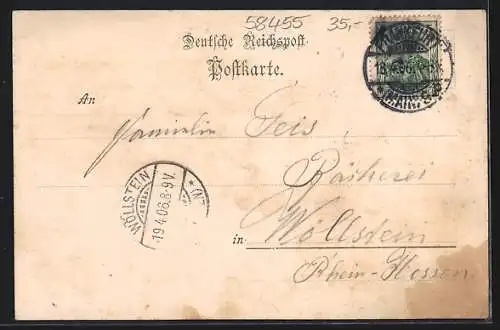 58455 35,-
Deutsche Reichspost
Postkarte.
An
Familie Geis
in Wöllstein
Rhein-Hessen
WÖLLSTEIN
19.4.06.8-9V.